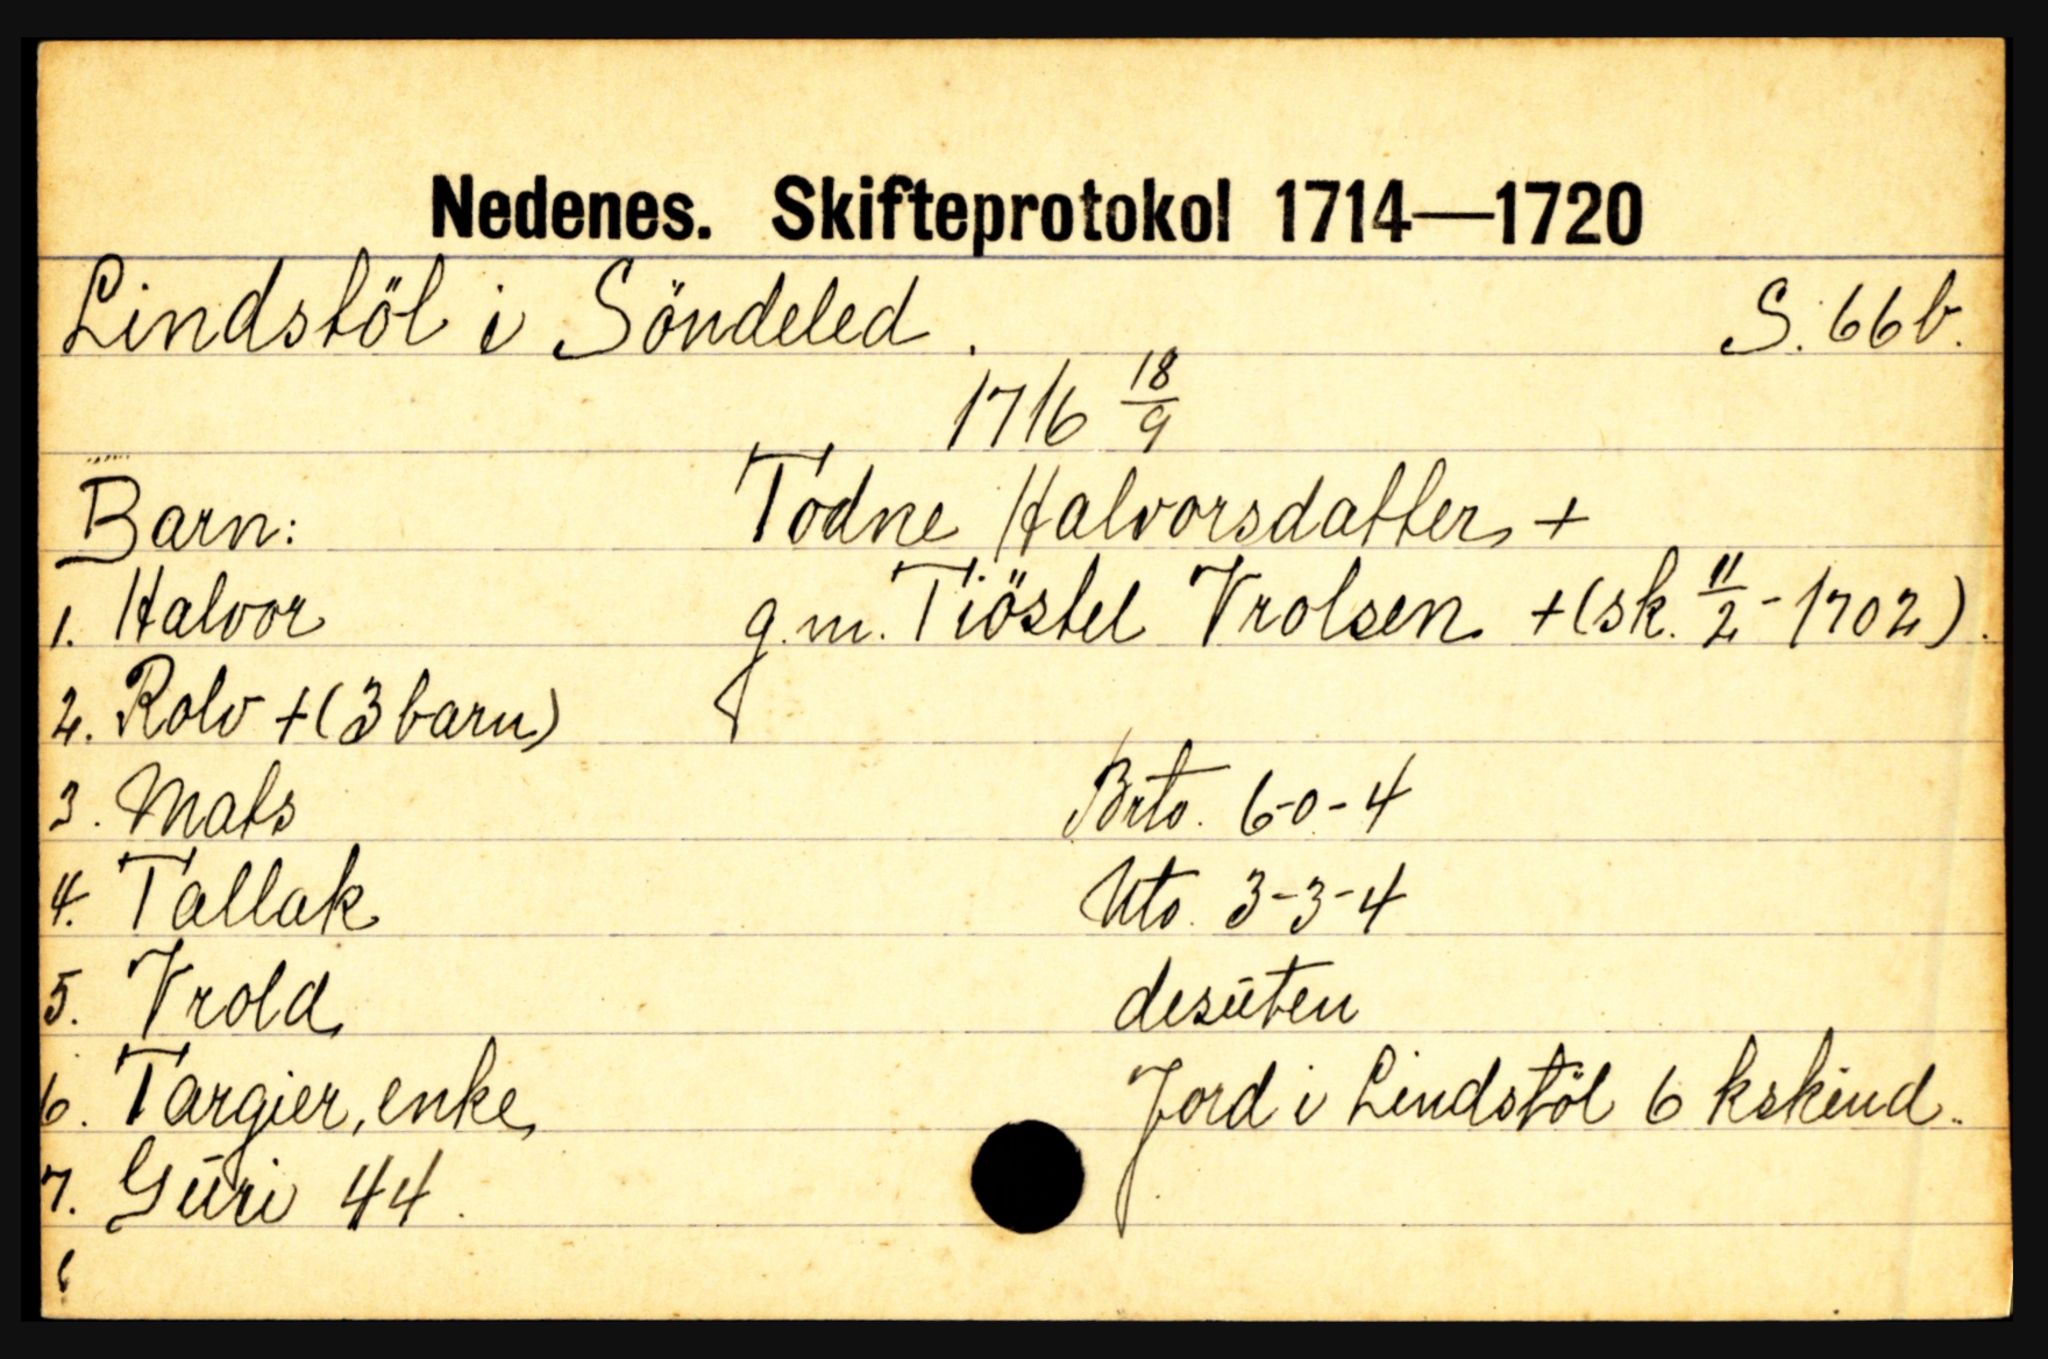 Nedenes. Skifteprotokol 1714—1720
Lindstöl i Söndeled. S. 66b.
1716 18/9
Barn: Todne Halvorsdatter +
1. Halvor g.m. Tiöstel Vrolsen +(sk. 11/2 - 1702).
2. Rolv +(3 barn)
3. Mats Brto. 6-0-4
4. Tallak Nto. 3-3-4
5. Vrold desūten
6. Targier, enke Jord i Lindstöl 6 kskind.
7. Gūri 44.